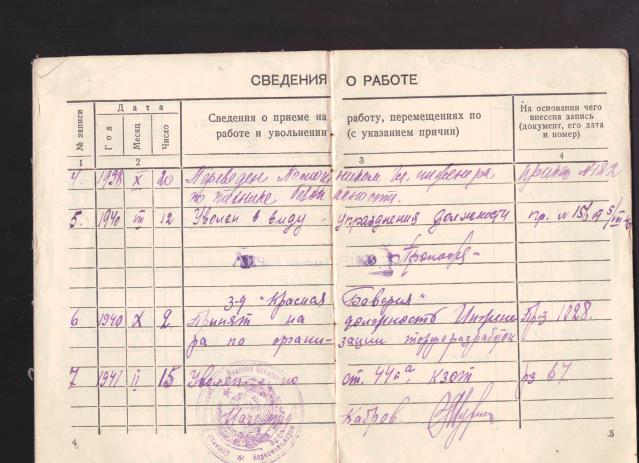 СВЕДЕНИЯ О РАБОТЕ
№ записи
Дата
Год
Месяц
Число
Сведения о приеме на работу, перемещениях по
работе и увольнении (с указанием причин)
На основании чего
внесена запись
(документ, его дата
и номер)
1 2 3 4
4. 1938 X 20 Переведен Помощником гл. инженера Приказ №182
по технике безопасности.
5. 1940 III 12 Уволен в виду упразднения должности пр. №
з-д "Красная Бавария"
6 1940 X 2. Принят на должность Инжене- Прз 1028.
ра по органи- зации торферазработок
7 1941 II 15 Уволен по ст. 44 п а, КЗОТ рз 67
Кадров
4
5